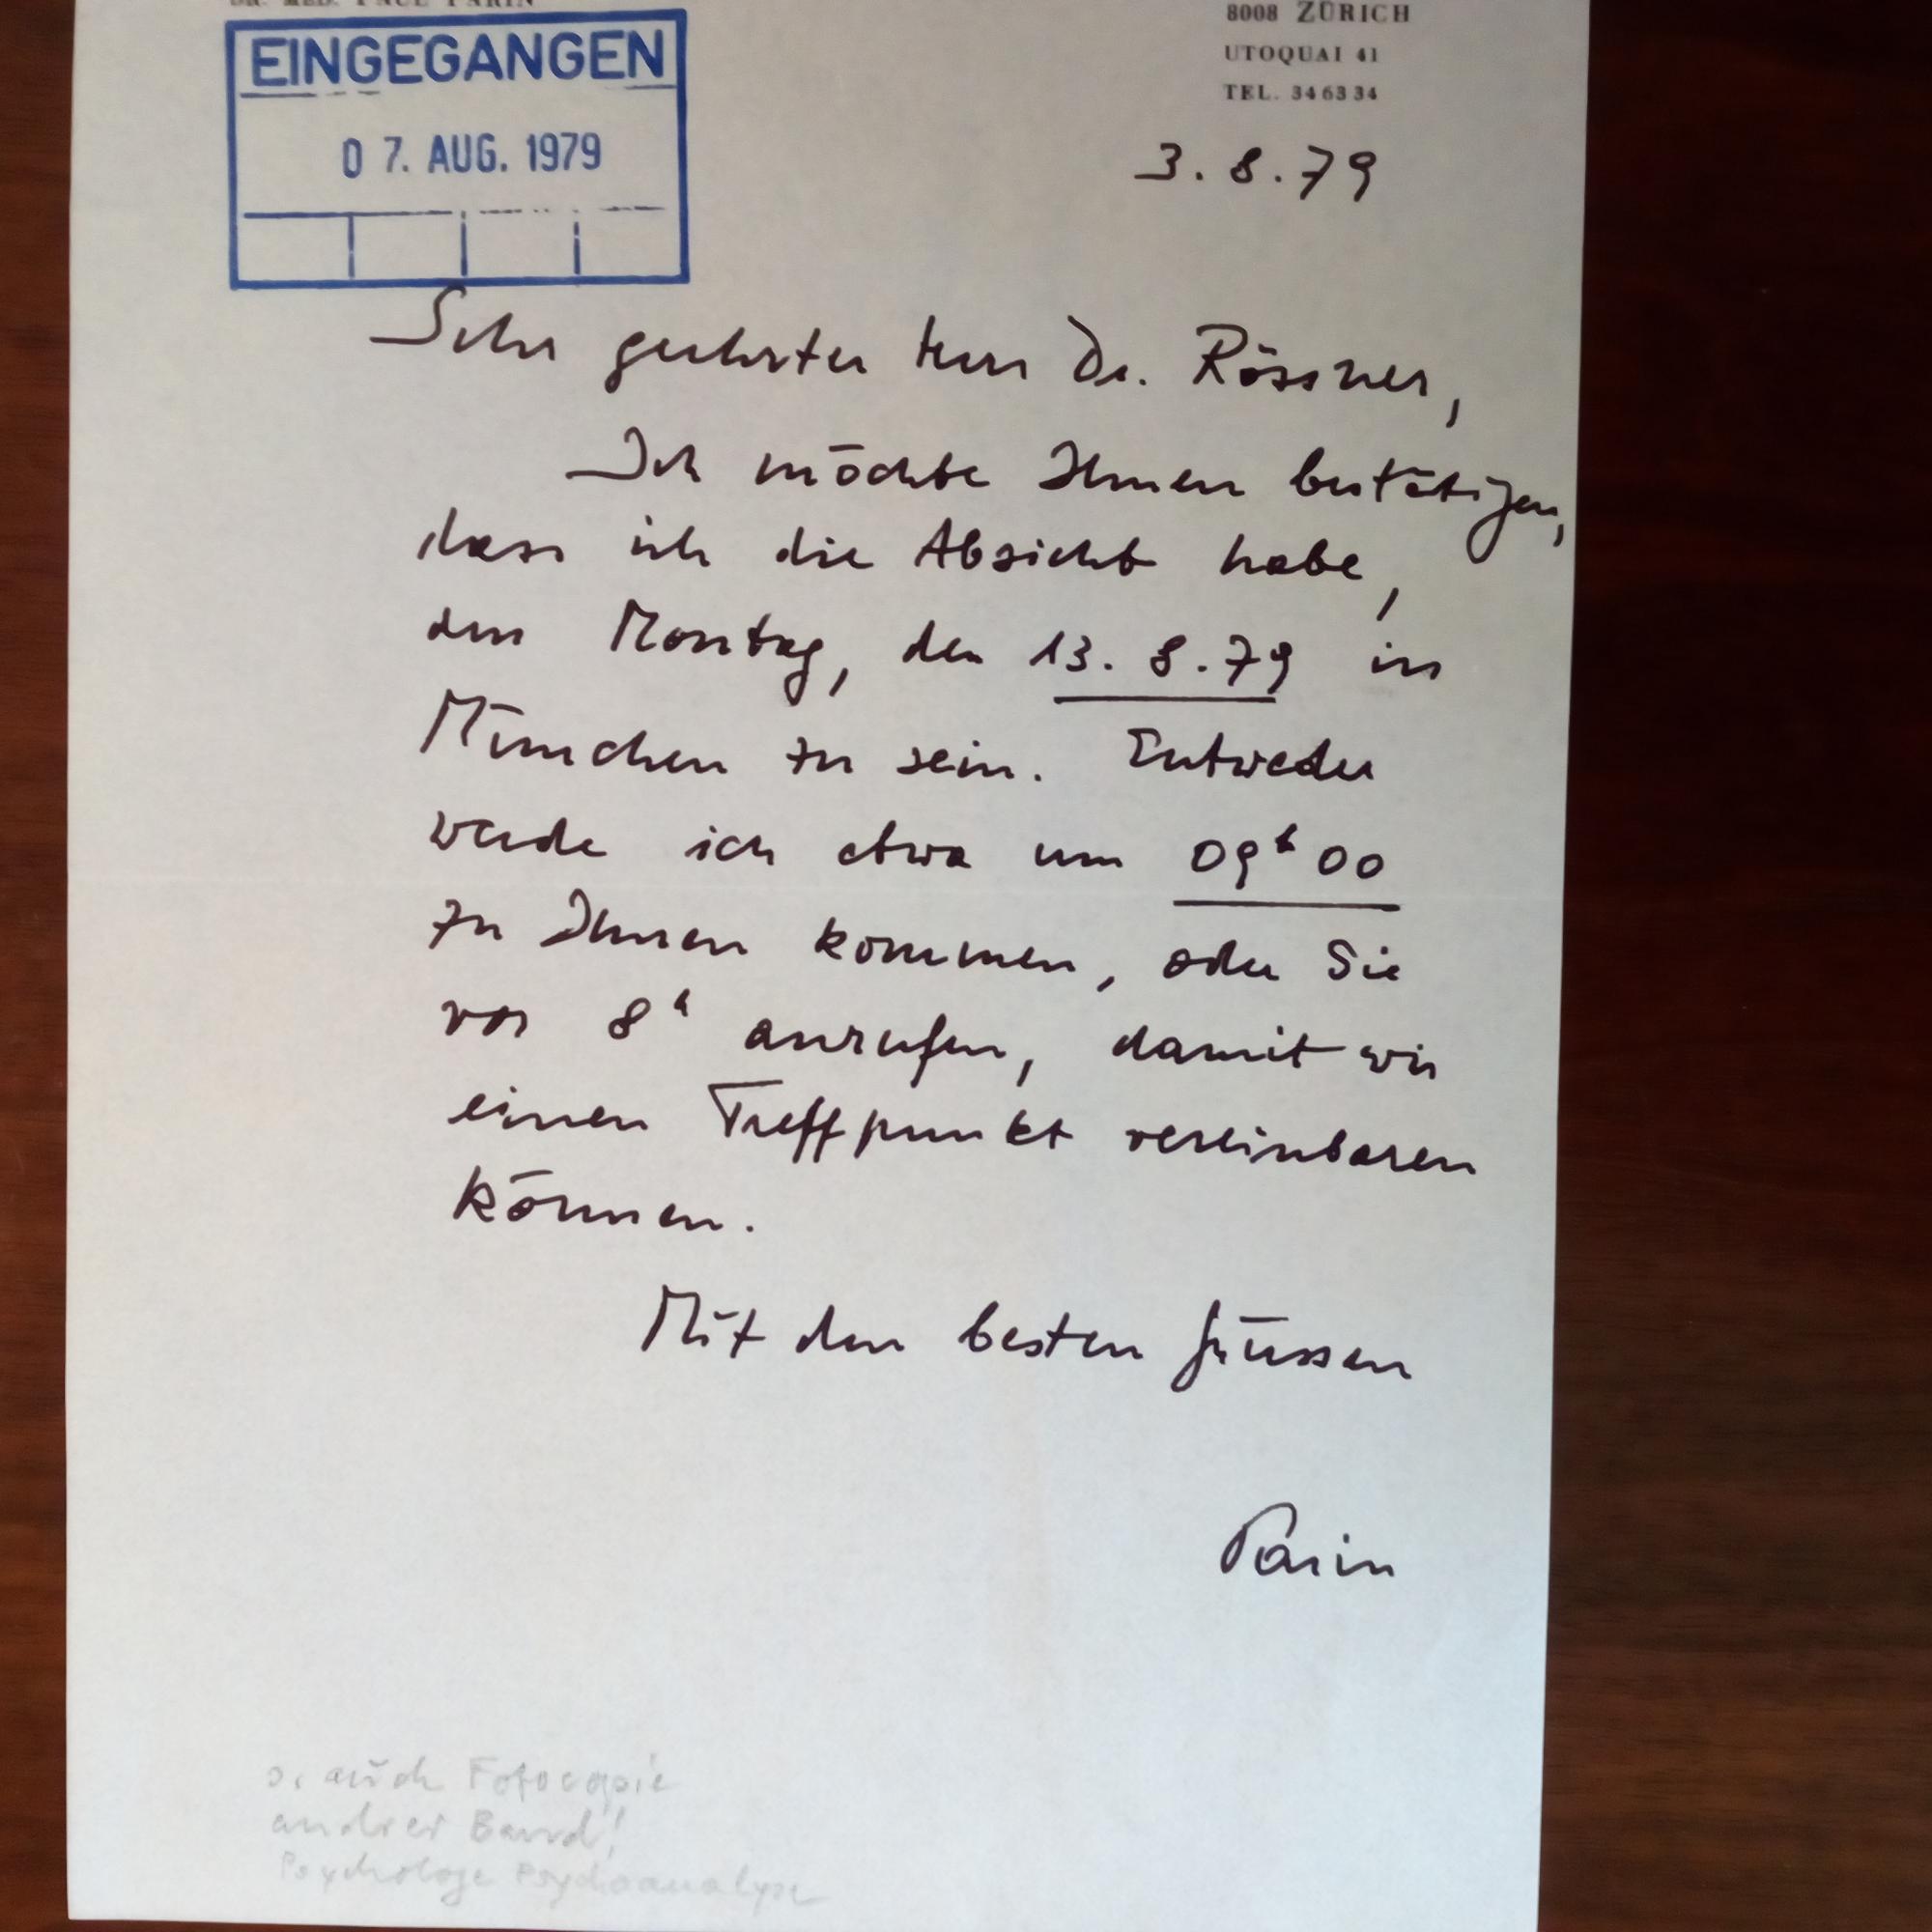 DR. MED. PAUL PARIN
8008 ZÜRICH
UTOQUAI 41
TEL. 34 63 34
EINGEGANGEN
07. AUG. 1979
3. 8. 79
Sehr geehrter Herr Dr. Rössner,
Ich möchte Ihnen bestätigen,
dass ich die Absicht habe,
den Montag, den 13. 8. 79 in
München zu sein. Entweder
werde ich etwa um 09h 00
zu Ihnen kommen, oder Sie
vor 8h anrufen, damit wir
einen Treffpunkt vereinbaren
können.
Mit den besten Grüssen
Parin
s. auch Fotocopie
andrer Band!
Psychologe Psychoanalyse